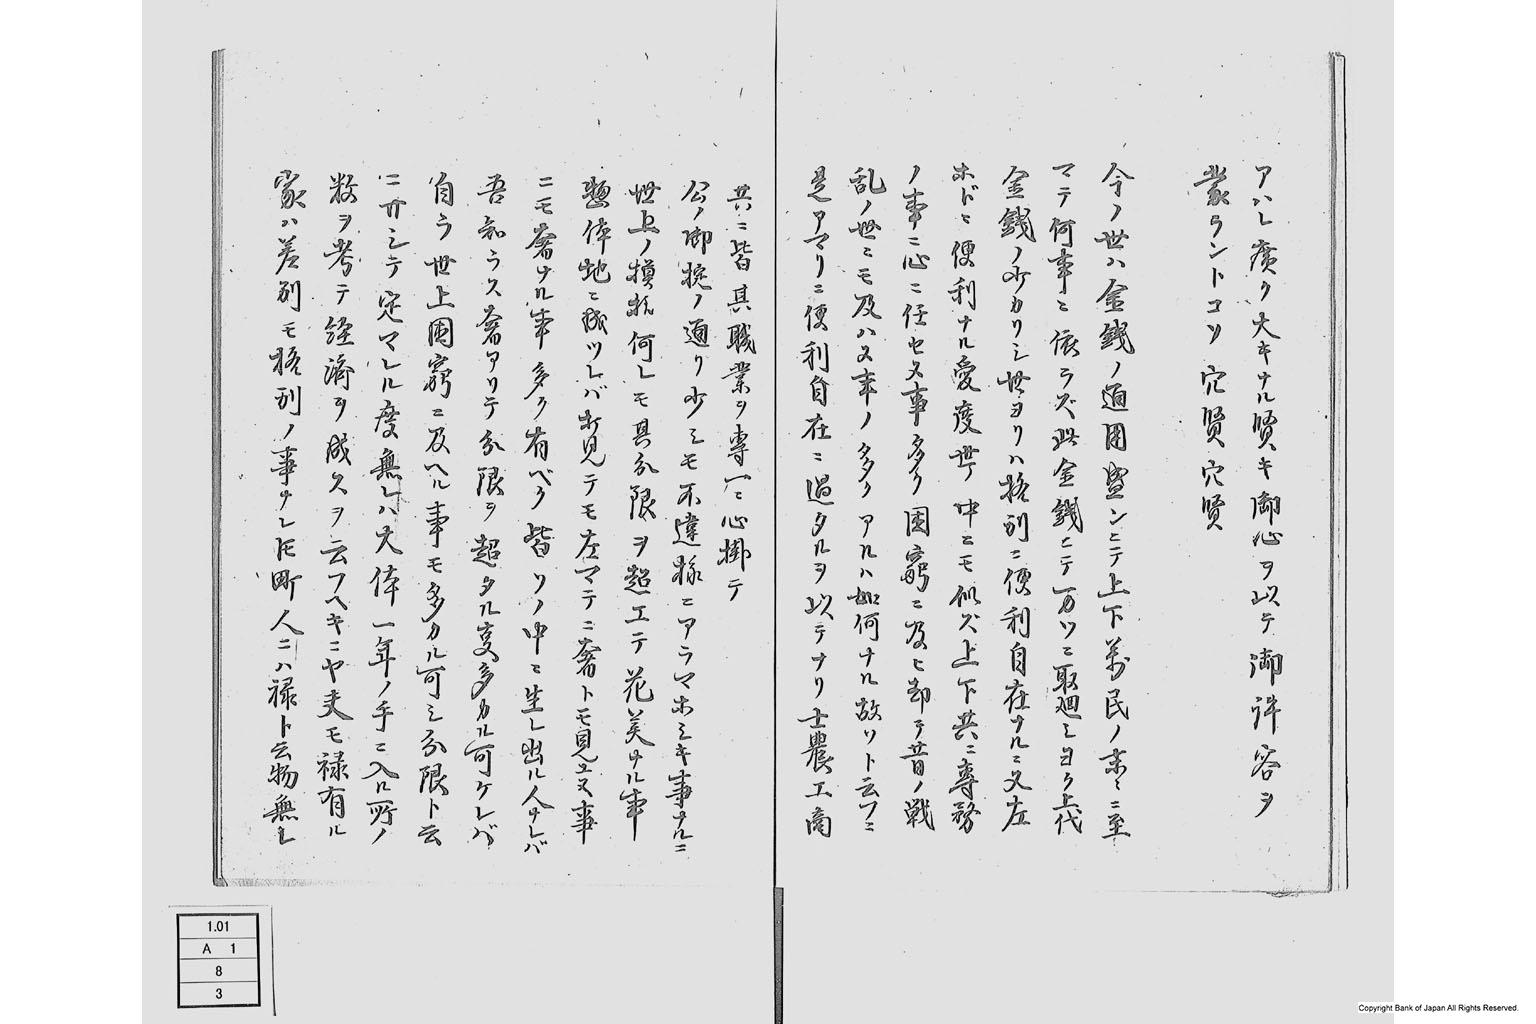 アハレ廣ク大キナル賢キ御心ヲ以テ御許容ヲ
蒙ラントコソ穴賢穴賢
今ノ世ハ金銭ノ通用盛ンニテ上下萬民ノ末々ニ至
マテ何事ニ依ラズ此金銭ニテ万ツニ取廻シヨク上代
金銭ノ少カリシ世ヨリハ格別ニ便利自在ナルニ又左
ホドニ便利ナル愛度世ノ中ニモ似ズ上下共ニ專務
ノ事ニ心ニ任セヌ事多ク困窮ニ及ヒ却テ昔ノ戦
乱ノ世ニモ及ハヌ事ノ多ク アルハ如何ナル故ソト云フニ
是アマリニ便利自在ニ過タルヲ以テナリ士農工商
共ニ皆其職業ヲ專一ニ心掛テ
公ノ御掟ノ通リ少シモ不違様ニアラマホシキ事ナルニ
世上ノ模様何レモ其分限ヲ超エテ花美ナル事
惣体地ニ成ツレバ打見テモ左マテニ奢トモ見エヌ事
ニモ奢ナル事多ク有ベク皆ソノ中ニ生レ出ル人ナレバ
吾知ラス奢アリテ分限ヲ超タル事多カル可ケレバ
自ラ世上困窮ニ及ヘル事モ多カル可シ分限ト云
ニ廾シテ定マレル度無レハ大体一年ノ手ニ入ル所ノ
数ヲ考テ経済ヲ成スヲ云フヘキニヤ夫モ禄有ル
家ハ差別モ格別ノ事ナレ𪜈町人ニハ禄ト云物無レ
1.01
A 1
8
3
Copyright Bank of Japan All Rights Reserved.